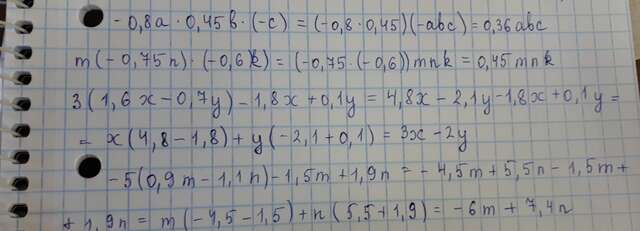 - 0,8a · 0,45b · (-c) = (-0,8 · 0,45)(-abc) = 0,36abc
m(-0,75n) · (-0,6k) = (-0,75 · (-0,6))mnk = 0,45mnk
3(1,6x - 0,7y) - 1,8x + 0,1y = 4,8x - 2,1y - 1,8x + 0,1y =
= x(4,8 - 1,8) + y(-2,1 + 0,1) = 3x - 2y
-5(0,9m - 1,1n) - 1,5m + 1,9n = -4,5m + 5,5n - 1,5m +
+ 1,9n = m(-4,5 - 1,5) + n(5,5 + 1,9) = -6m + 7,4n